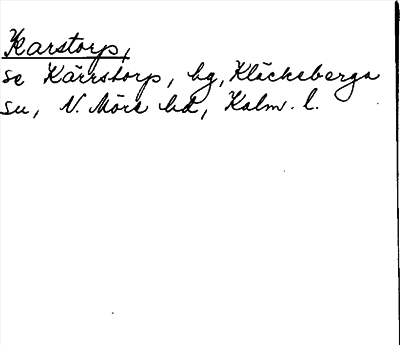 Karstorp,
se Kärrstorp, bg, Kläckeberga
sn, N. Möre hd, Kalm. l.